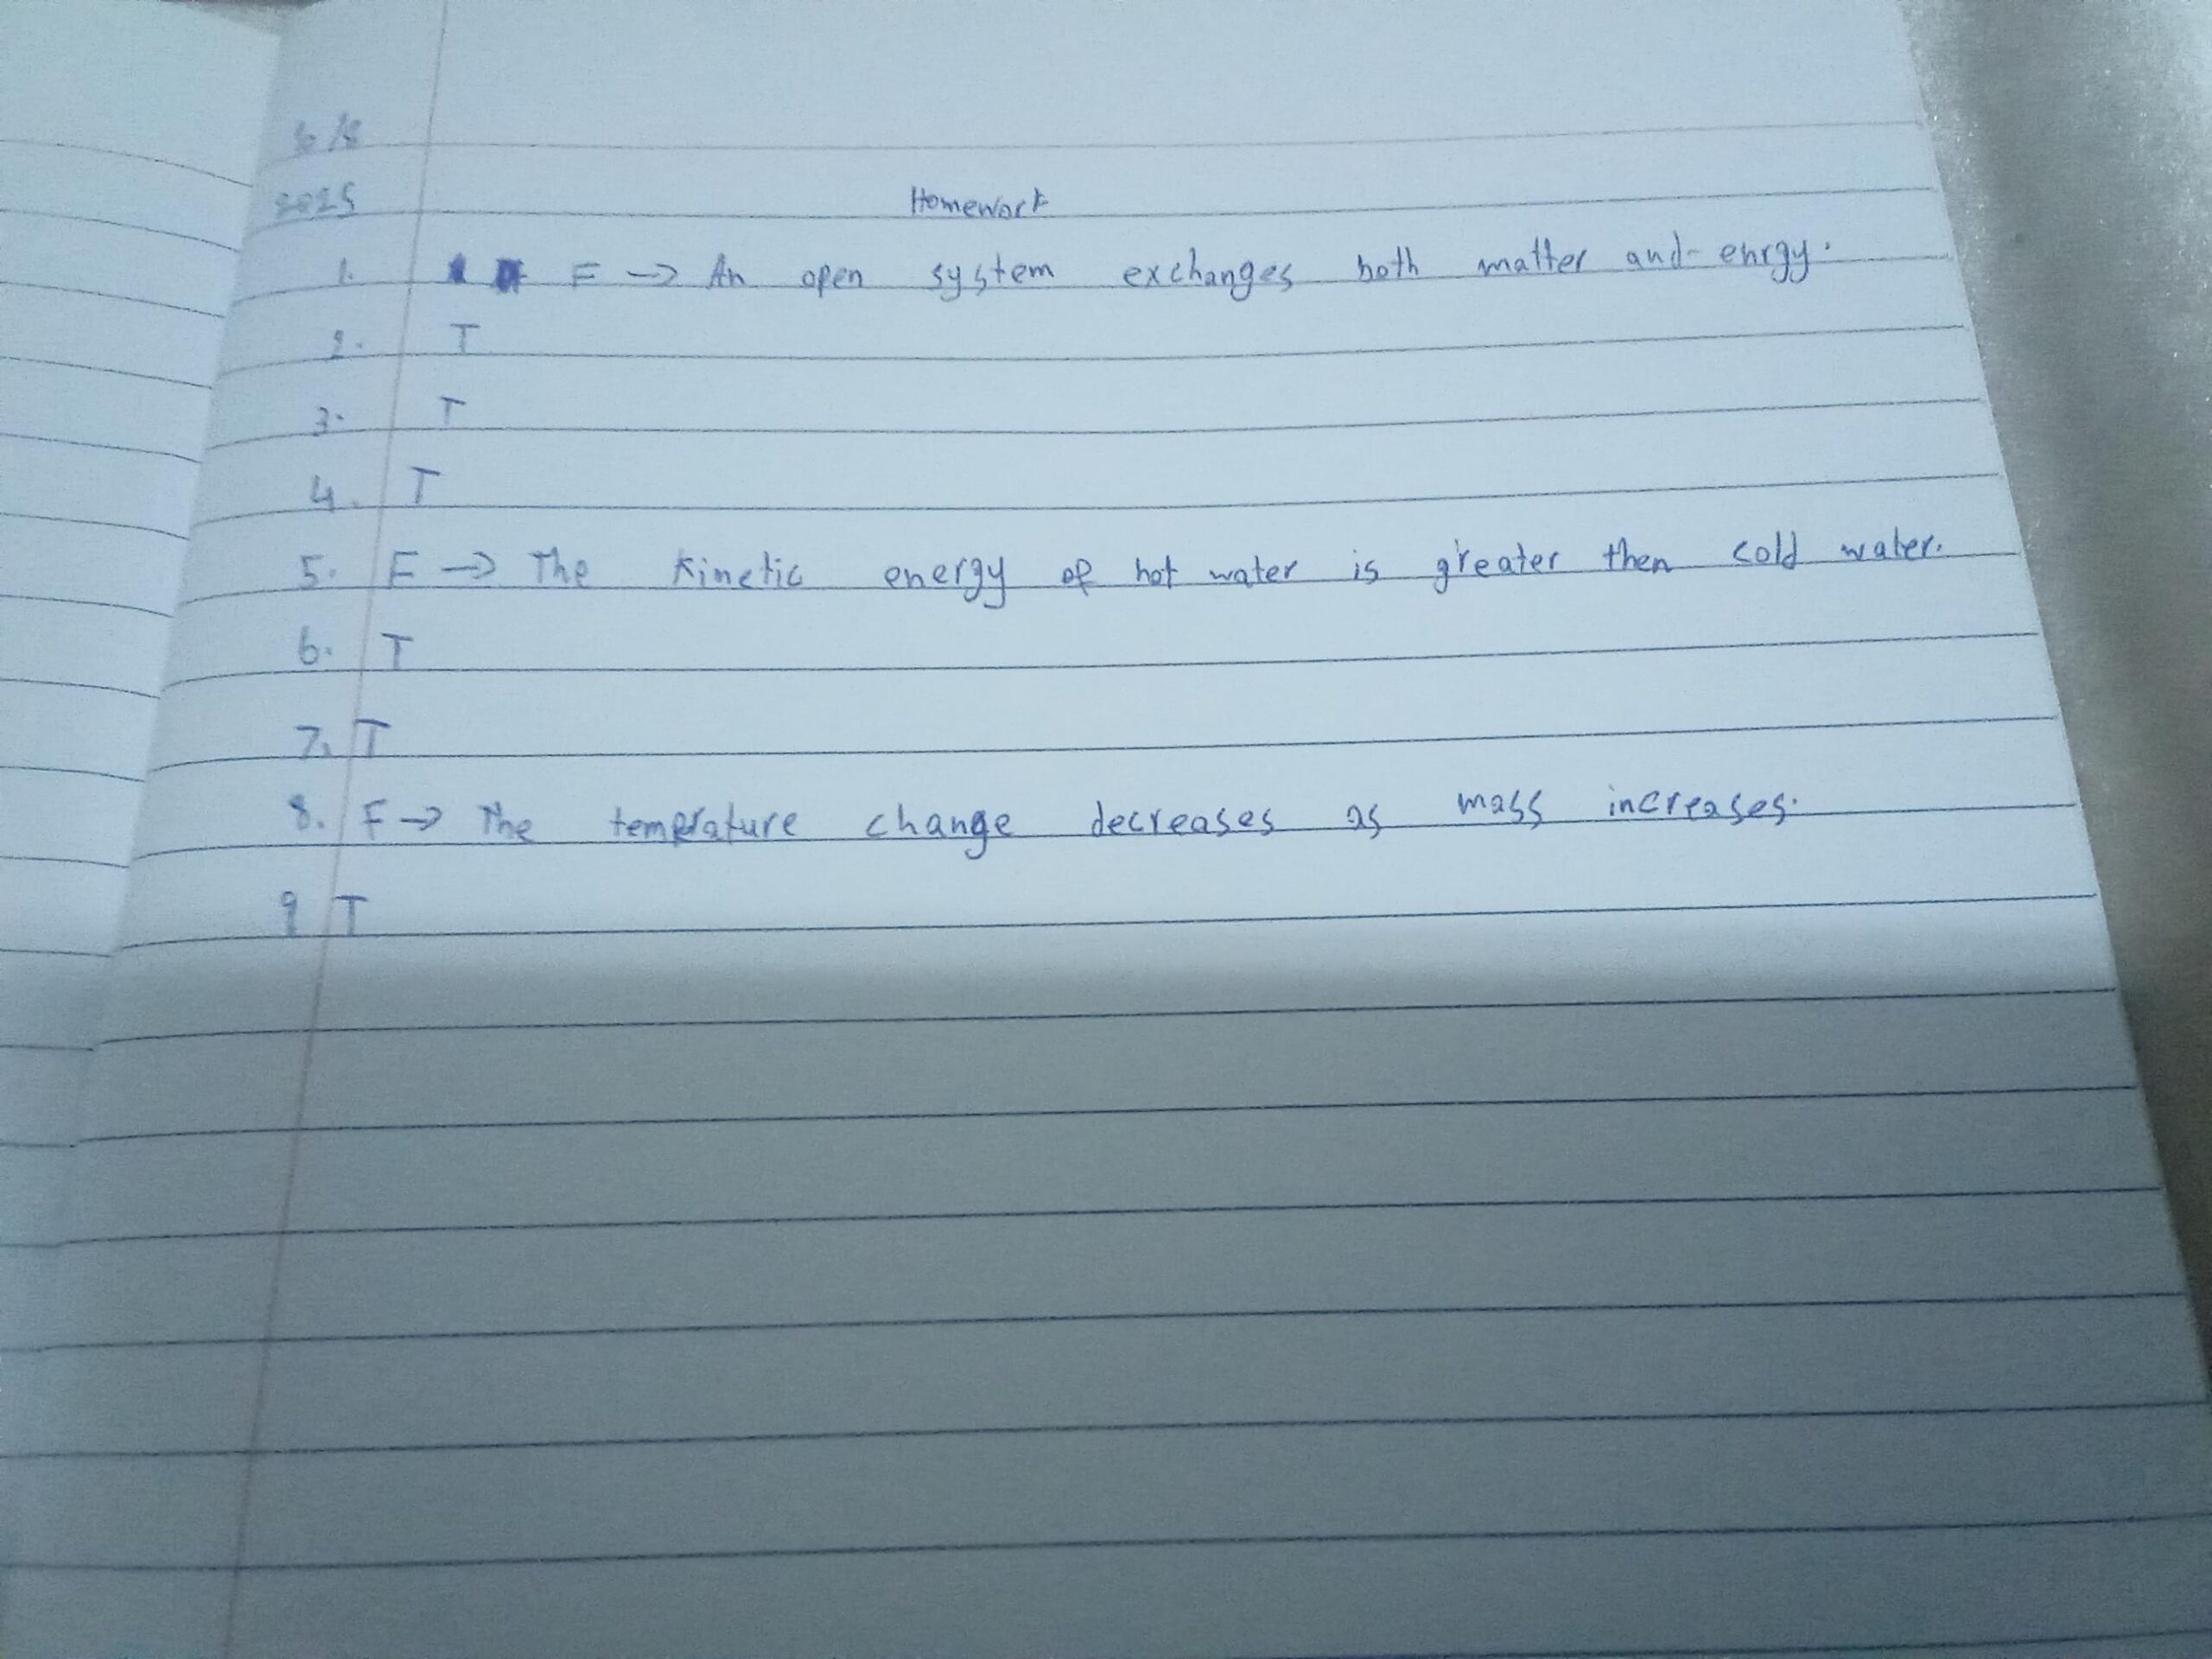 2025
Homework
1. F → An open system exchanges both matter and enrgy.
2. T
3. T
4. T
5. F → The kinetic energy of hot water is greater then cold water.
6. T
7. T
8. F → The temprature change decreases as mass increases.
9 T